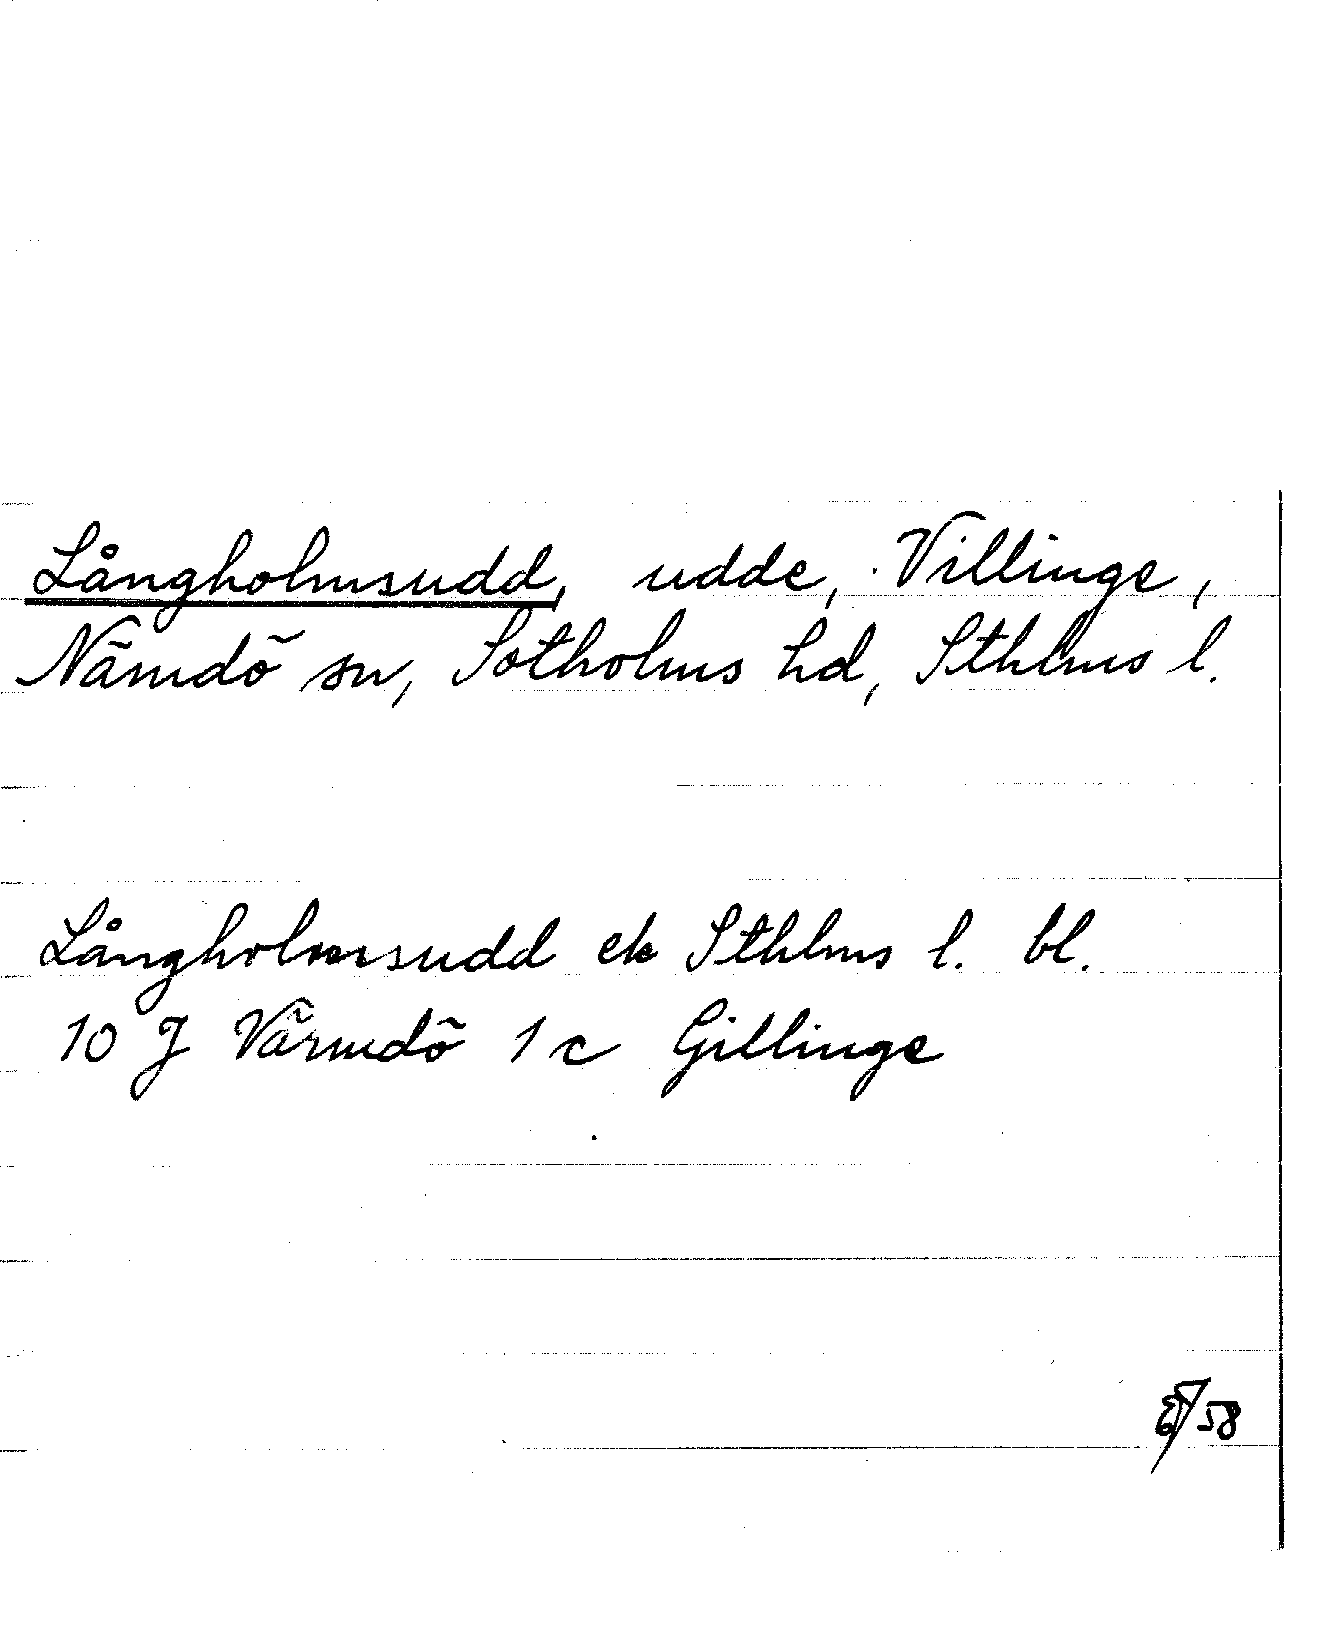 Långholmsudd, udde, Villinge,
Nämdö sn, Sotholms hd, Sthlms l.
Långholmsudd ek Sthlms l. bl.
10 J Värmdö 1 c Gillinge
58